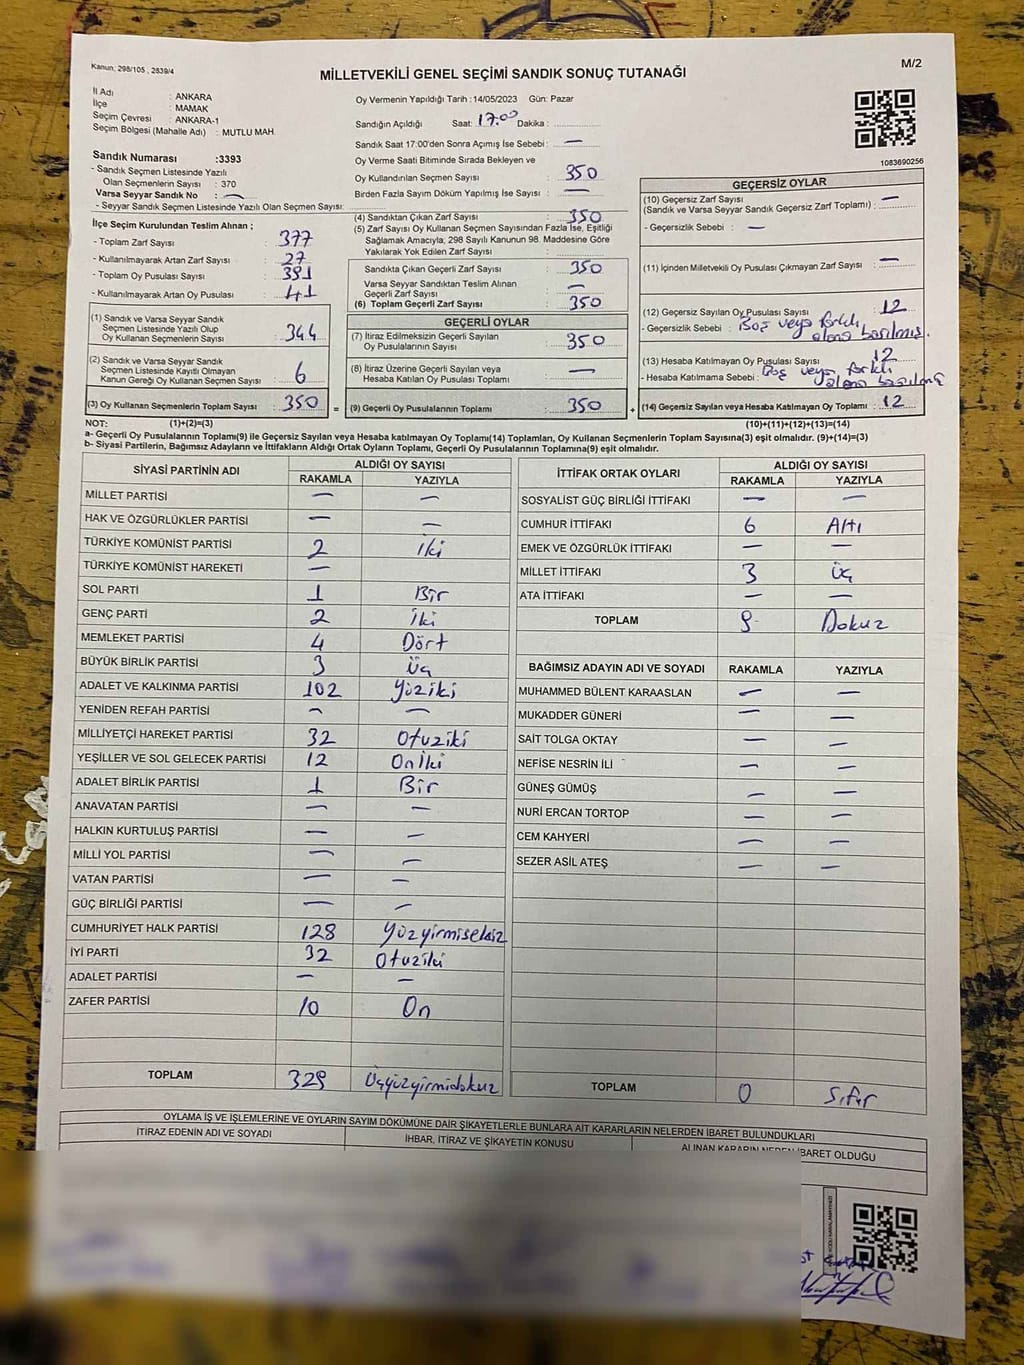 Kanun, 298/105 , 2839/4
M/2
MİLLETVEKİLİ GENEL SEÇİMİ SANDIK SONUÇ TUTANAĞI
İl Adı : ANKARA
İlçe : MAMAK
Seçim Çevresi : ANKARA-1
Seçim Bölgesi (Mahalle Adı) : MUTLU MAH.
Sandık Numarası :3393
- Sandık Seçmen Listesinde Yazılı
Olan Seçmenlerin Sayısı : 370
Varsa Seyyar Sandık No : —
- Seyyar Sandık Seçmen Listesinde Yazılı Olan Seçmen Sayısı:
İlçe Seçim Kurulundan Teslim Alınan ;
- Toplam Zarf Sayısı : 377
- Kullanılmayarak Artan Zarf Sayısı : 27
- Toplam Oy Pusulası Sayısı : 391
- Kullanılmayarak Artan Oy Pusulası : 41
(1) Sandık ve Varsa Seyyar Sandık
Seçmen Listesinde Yazılı Olup
Oy Kullanan Seçmenlerin Sayısı : 344
(2) Sandık ve Varsa Seyyar Sandık
Seçmen Listesinde Kayıtlı Olmayan
Kanun Gereği Oy Kullanan Seçmen Sayısı : 6
(3) Oy Kullanan Seçmenlerin Toplam Sayısı : 350
Oy Vermenin Yapıldığı Tarih : 14/05/2023 Gün: Pazar
Sandığın Açıldığı Saat: 17.00 Dakika :
Sandık Saat 17:00'den Sonra Açımış İse Sebebi : —
Oy Verme Saati Bitiminde Sırada Bekleyen ve
Oy Kullandırılan Seçmen Sayısı : 350
Birden Fazla Sayım Döküm Yapılmış İse Sayısı : —
(4) Sandıktan Çıkan Zarf Sayısı : 350
(5) Zarf Sayısı Oy Kullanan Seçmen Sayısından Fazla İse, Eşitliği
Sağlamak Amacıyla, 298 Sayılı Kanunun 98. Maddesine Göre
Yakılarak Yok Edilen Zarf Sayısı :
Sandıkta Çıkan Geçerli Zarf Sayısı : 350
Varsa Seyyar Sandıktan Teslim Alınan
Geçerli Zarf Sayısı : —
(6) Toplam Geçerli Zarf Sayısı : 350
GEÇERLİ OYLAR
(7) İtiraz Edilmeksizin Geçerli Sayılan
Oy Pusulalarının Sayısı : 350
(8) İtiraz Üzerine Geçerli Sayılan veya
Hesaba Katılan Oy Pusulası Toplamı : —
= (9) Geçerli Oy Pusulalarının Toplamı : 350
1083690256
GEÇERSİZ OYLAR
(10) Geçersiz Zarf Sayısı
(Sandık ve Varsa Seyyar Sandık Geçersiz Zarf Toplamı) : —
- Geçersizlik Sebebi : —
(11) İçinden Milletvekili Oy Pusulası Çıkmayan Zarf Sayısı : —
(12) Geçersiz Sayılan Oy Pusulası Sayısı : 12
- Geçersizlik Sebebi : Boş veya farklı
alana basılmış.
(13) Hesaba Katılmayan Oy Pusulası Sayısı : 12
- Hesaba Katılmama Sebebi : Boş veya farklı
alana basılmış
+ (14) Geçersiz Sayılan veya Hesaba Katılmayan Oy Toplamı : 12
NOT: (1)+(2)=(3) (10)+(11)+(12)+(13)=(14)
a- Geçerli Oy Pusulalarının Toplamı(9) ile Geçersiz Sayılan veya Hesaba katılmayan Oy Toplamı(14) Toplamları, Oy Kullanan Seçmenlerin Toplam Sayısına(3) eşit olmalıdır. (9)+(14)=(3)
b- Siyasi Partilerin, Bağımsız Adayların ve İttifakların Aldığı Ortak Oyların Toplamı, Geçerli Oy Pusulalarının Toplamına(9) eşit olmalıdır.
SİYASİ PARTİNİN ADI ALDIĞI OY SAYISI
RAKAMLA YAZIYLA
MİLLET PARTİSİ — —
HAK VE ÖZGÜRLÜKLER PARTİSİ — —
TÜRKİYE KOMÜNİST PARTİSİ 2 İki
TÜRKİYE KOMÜNİST HAREKETİ —
SOL PARTİ 1 Bir
GENÇ PARTİ 2 İki
MEMLEKET PARTİSİ 4 Dört
BÜYÜK BİRLİK PARTİSİ 3 Üç
ADALET VE KALKINMA PARTİSİ 102 Yüziki
YENİDEN REFAH PARTİSİ — —
MİLLİYETÇİ HAREKET PARTİSİ 32 Otuziki
YEŞİLLER VE SOL GELECEK PARTİSİ 12 Oniki
ADALET BİRLİK PARTİSİ 1 Bir
ANAVATAN PARTİSİ — —
HALKIN KURTULUŞ PARTİSİ — —
MİLLİ YOL PARTİSİ — —
VATAN PARTİSİ — —
GÜÇ BİRLİĞİ PARTİSİ — —
CUMHURİYET HALK PARTİSİ 128 Yüzyirmisekiz
İYİ PARTİ 32 Otuziki
ADALET PARTİSİ — —
ZAFER PARTİSİ 10 On
TOPLAM 329 Üçyüzyirmidokuz
İTTİFAK ORTAK OYLARI ALDIĞI OY SAYISI
RAKAMLA YAZIYLA
SOSYALİST GÜÇ BİRLİĞİ İTTİFAKI — —
CUMHUR İTTİFAKI 6 Altı
EMEK VE ÖZGÜRLÜK İTTİFAKI — —
MİLLET İTTİFAKI 3 Üç
ATA İTTİFAKI — —
TOPLAM 9 Dokuz
BAĞIMSIZ ADAYIN ADI VE SOYADI RAKAMLA YAZIYLA
MUHAMMED BÜLENT KARAASLAN — —
MUKADDER GÜNERİ — —
SAİT TOLGA OKTAY — —
NEFİSE NESRİN İLİ — —
GÜNEŞ GÜMÜŞ — —
NURİ ERCAN TORTOP — —
CEM KAHYERİ — —
SEZER ASİL ATEŞ — —
TOPLAM 0 Sıfır
OYLAMA İŞ VE İŞLEMLERİNE VE OYLARIN SAYIM DÖKÜMÜNE DAİR ŞİKAYETLERLE BUNLARA AİT KARARLARIN NELERDEN İBARET BULUNDUKLARI
İTİRAZ EDENİN ADI VE SOYADI İHBAR, İTİRAZ VE ŞİKAYETİN KONUSU ALINAN KARARIN NEDEN İBARET OLDUĞU